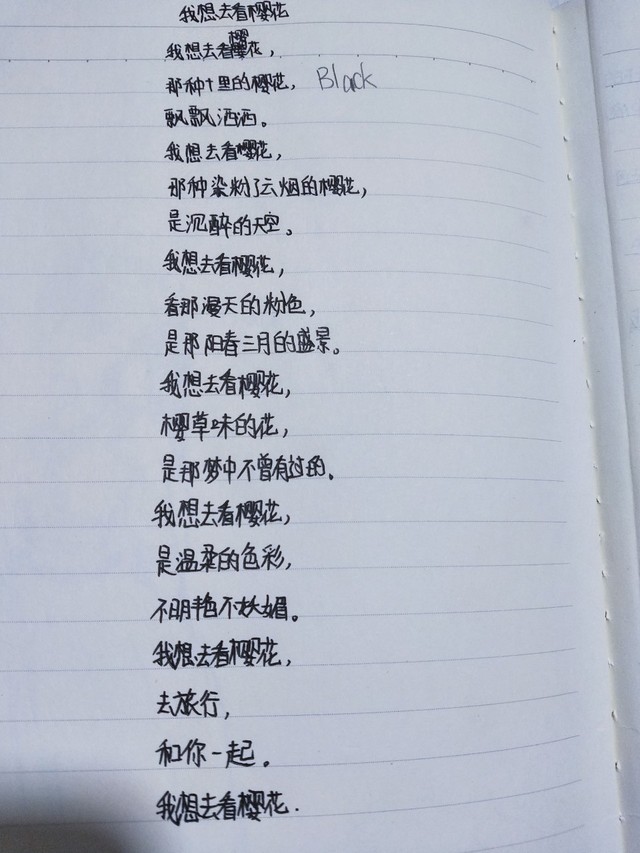 我想去看樱花
我想去看樱花，
那种十里的樱花， Black
飘飘洒洒。
我想去看樱花，
那种染粉了云烟的樱花，
是沉醉的天空。
我想去看樱花，
看那漫天的粉色，
是那阳春三月的盛景。
我想去看樱花，
樱草味的花，
是那梦中不曾有过的。
我想去看樱花，
是温柔的色彩，
不明艳不妖媚。
我想去看樱花，
去旅行，
和你一起。
我想去看樱花.